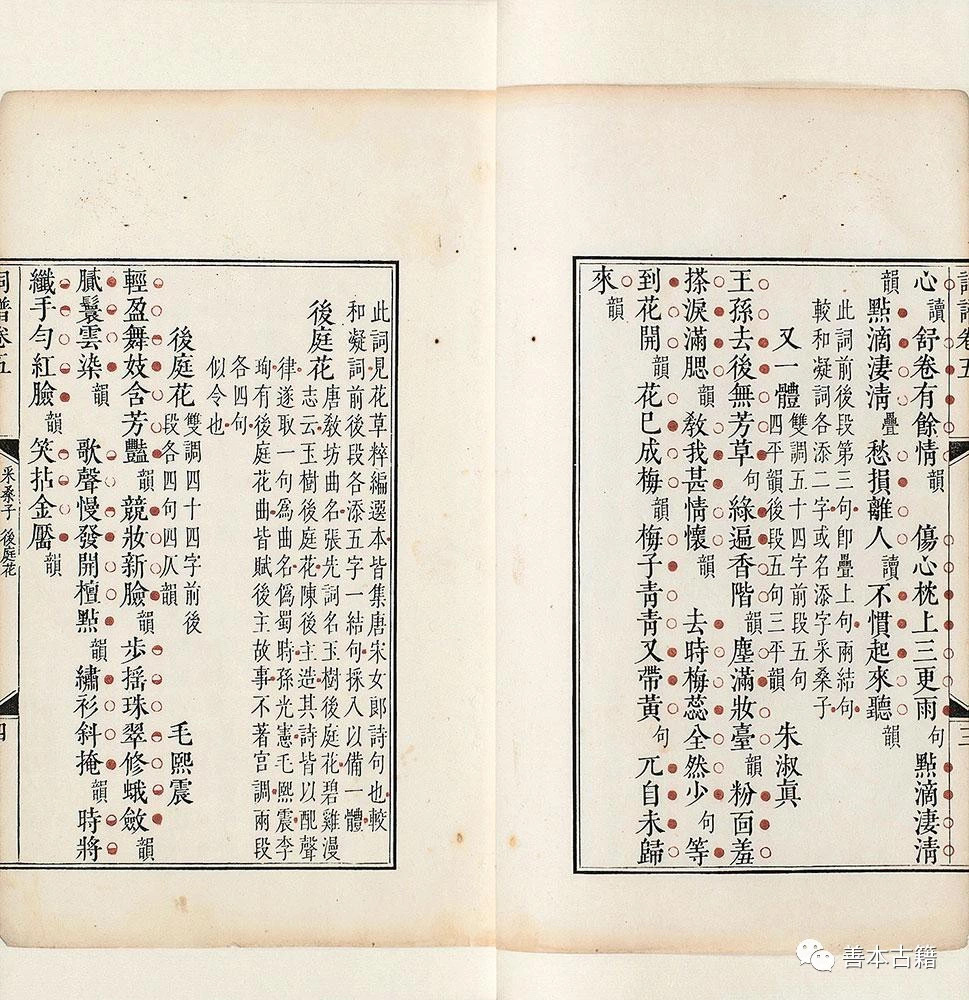 心讀舒卷有餘情韻傷心枕上三更雨句點滴淒清
韻點滴淒清疊愁損離人讀不慣起來聽韻
此詞前後段第三句卽疊上句兩結句
較和凝詞各添二字或名添字采桑子
又一體雙調五十四字前段五句
四平韻後段五句三平韻
朱淑眞
王孫去後無芳草句綠遍香階韻塵滿妝臺韻粉面羞
搽淚滿腮韻敎我甚情懷韻去時梅蕊全然少句等
到花開韻花已成梅韻梅子青青又帶黃句兀自未歸
來韻
詞譜卷五
采桑子 後庭花
四
此詞見花草粹編選本皆集唐宋女郞詩句也較
和凝詞前後段各添五字一結句採入以備一體
後庭花唐敎坊曲名張先詞名玉樹後庭花碧雞漫
志云玉樹後庭花陳後主造其詩皆以配聲
律遂取一句爲曲名僞蜀時孫光憲毛熙震李
珣有後庭花曲皆賦後主故事不著宮調兩段
各四句
似令也
後庭花雙調四十四字前後
段各四句四仄韻
毛熙震
輕盈舞妓含芳豔韻競妝新臉韻步搖珠翠修蛾斂韻
膩鬟雲染韻歌聲慢發開檀點韻繡衫斜掩韻時將
纖手勻紅臉韻笑拈金靨韻
善本古籍